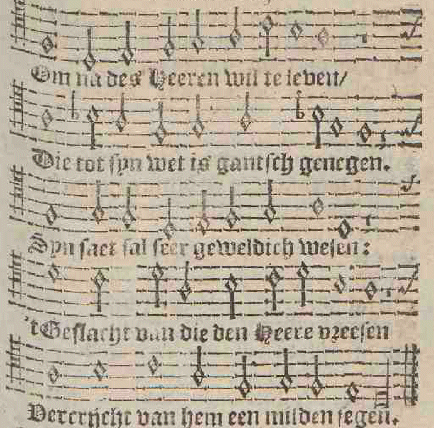 Om na des Heeren wil te leven/
Die tot syn wet is gantsch genegen.
Syn saet sal seer geweldich wesen:
't Geslacht van die den Heere vreesen
Vercrijcht van hem een milden segen.